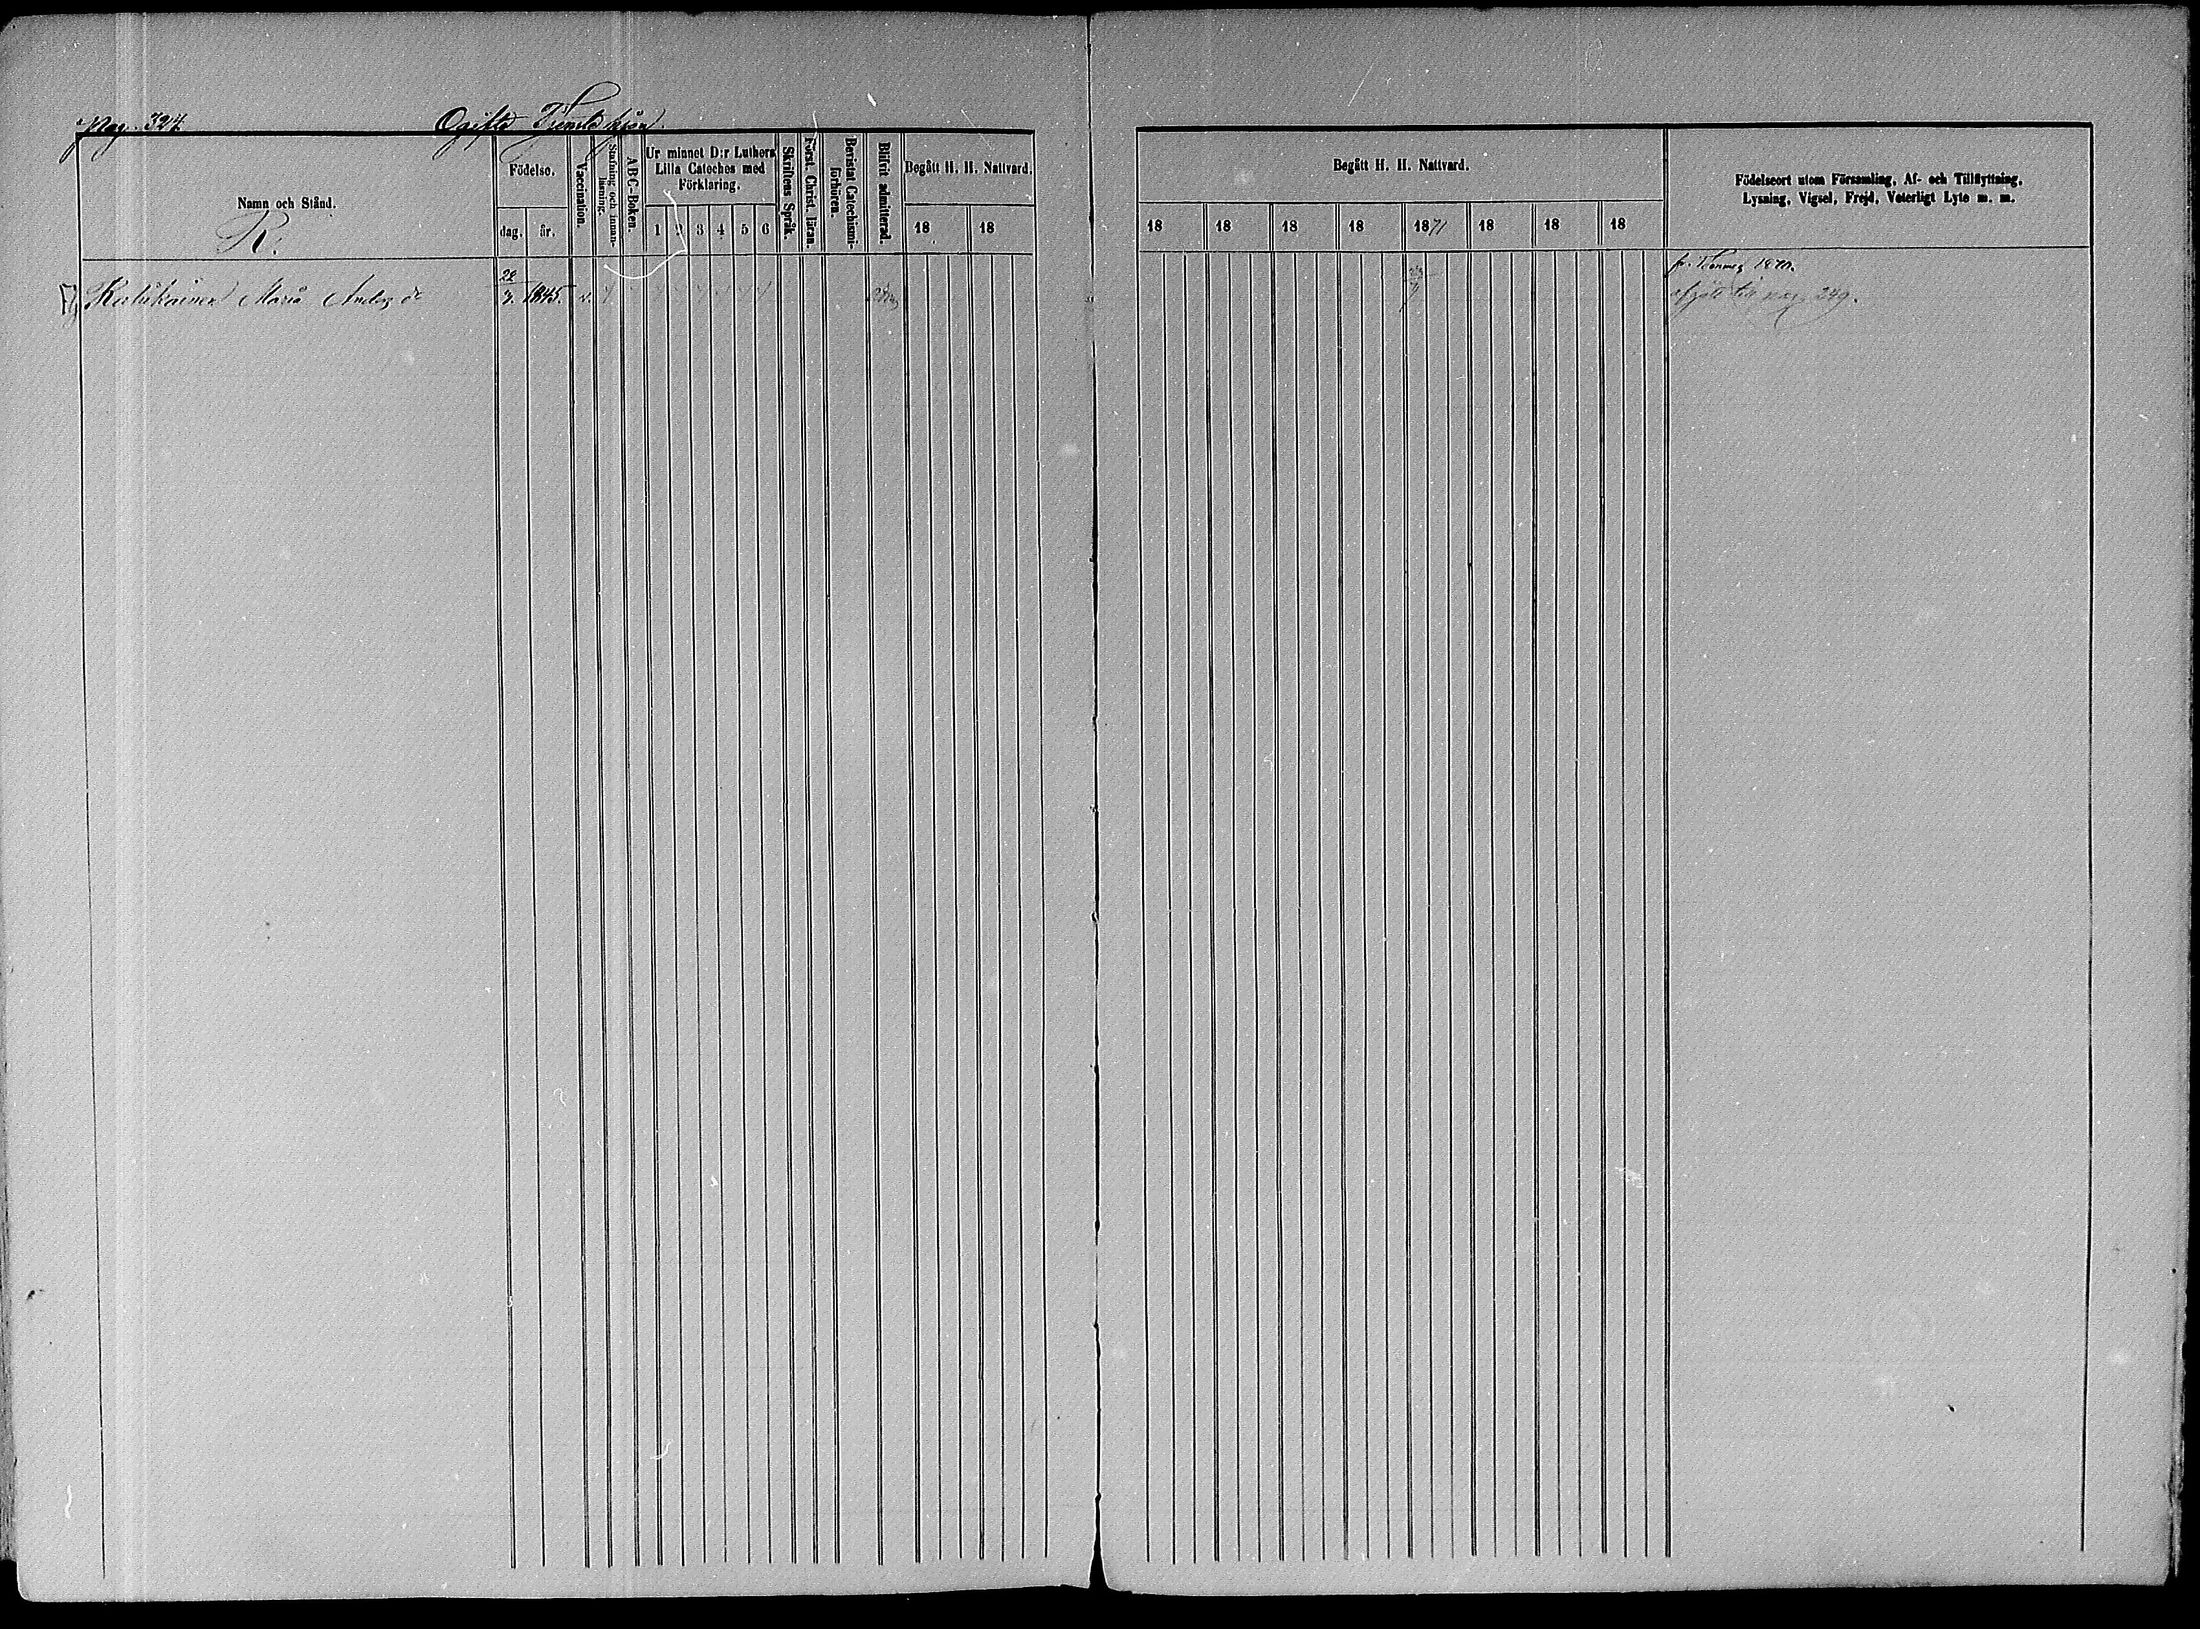 Pag. 324.
Ogifta Tjenstehjon.
Namn och Stånd.
R.
Födelse.
dag. år.
Vaccination.
Stafning och innan-
läsning.
ABC-Boken.
Ur minnet D:r Luthers
Lilla Cateches med
Förklaring.
1 2 3 4 5 6
Skriftens Språk.
Först. Christ. läran.
Bevistat Catechismi-
förhören.
Blifvit admitterad.
Begått H. H. Nattvard.
18 18
Begått H. H. Nattvard.
18 18 18 18 1871 18 18 18
Födelseort utom Församling, Af- och Tillflyttning,
Lysning, Vigsel, Frejd, Veterligt Lyte m. m.
Maria 22/7. 1845. v.
fr. 1870.
till pag. 249.